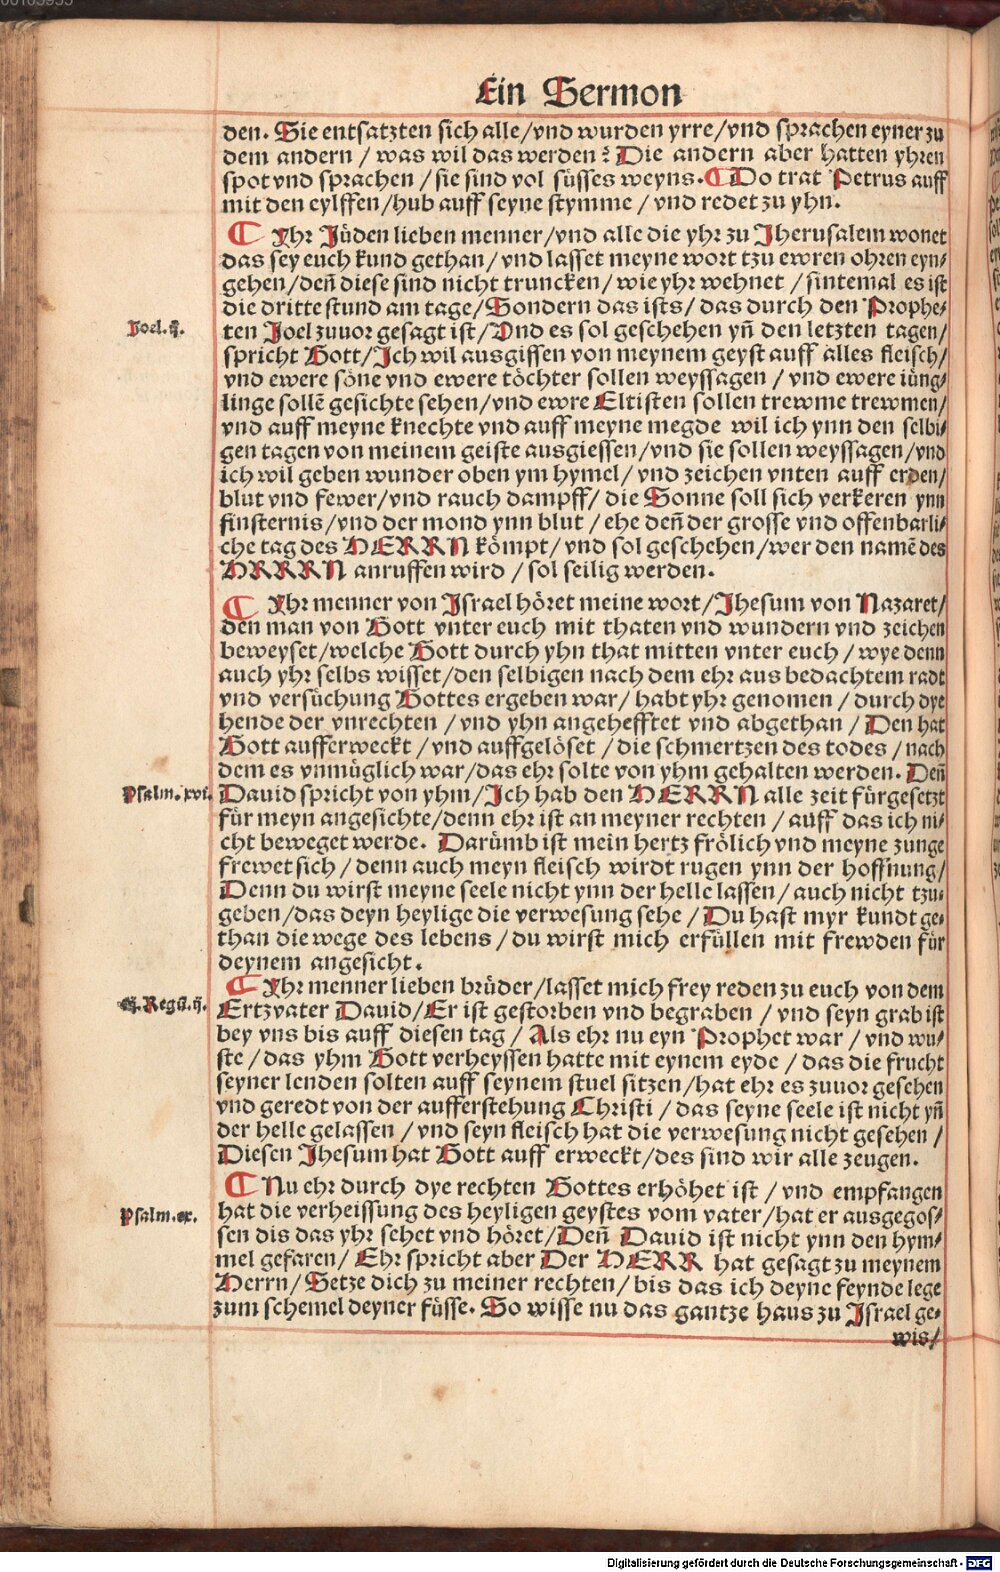 Ein Sermon
den. Sie entsatzten sich alle/vnd wurden yrre/vnd sprachen eyner zu
dem andern / was wil das werden? Die andern aber hatten yhren
spot vnd sprachen / sie sind vol süsses weyns. ¶ Do trat Petrus auff
mit den eylffen/hub auff seyne stymme / vnd redet zu yhn.
¶ Yhr Jüden lieben menner/vnd alle die yhr zu Jherusalem wonet
das sey euch kund gethan/ vnd lasset meyne wort tzu ewren ohren eyn⸗
gehen/deñ diese sind nicht truncken/ wie yhr wehnet / sintemal es ist
die dritte stund am tage/Sondern das ists/ das durch den Prophe⸗
Joel. ij.
ten Joel zuuor gesagt ist/Vnd es sol geschehen yñ den letzten tagen/
spricht Gott/Ich wil ausgissen von meynem geyst auff alles fleisch/
vnd ewere söne vnd ewere töchter sollen weyssagen / vnd ewere iüng⸗
linge sollẽ gesichte sehen/vnd ewre Eltisten sollen trewme trewmen/
vnd auff meyne knechte vnd auff meyne megde wil ich ynn den selbi⸗
gen tagen von meinem geiste ausgiessen/vnd sie sollen weyssagen/vnd
ich wil geben wunder oben ym hymel/ vnd zeichen vnten auff erden/
blut vnd fewer/vnd rauch dampff/ die Sonne soll sich verkeren ynn
finsternis/vnd der mond ynn blut / ehe deñ der grosse vnd offenbarli⸗
che tag des HERRN kömpt/ vnd sol geschehen/wer den namẽ des
HRRRN anruffen wird / sol seilig werden.
¶ Yhr menner von Israel höret meine wort/Jhesum von Nazaret/
den man von Gott vnter euch mit thaten vnd wundern vnd zeichen
beweyset/welche Gott durch yhn that mitten vnter euch / wye denn
auch yhr selbs wisset/den selbigen nach dem ehr aus bedachtem radt
vnd versüchung Gottes ergeben war/ habt yhr genomen / durch dye
hende der vnrechten / vnd yhn angehefftet vnd abgethan / Den hat
Gott aufferweckt / vnd auffgelöset / die schmertzen des todes / nach
dem es vnmüglich war/das ehr solte von yhm gehalten werden. Deñ
Psalm. xvi.
Dauid spricht von yhm/Ich hab den HERRN alle zeit fürgesetzt
für meyn angesichte/denn ehr ist an meyner rechten / auff das ich ni⸗
cht beweget werde. Darümb ist mein hertz frölich vnd meyne zunge
frewet sich / denn auch meyn fleisch wirdt rugen ynn der hoffnung/
Denn du wirst meyne seele nicht ynn der helle lassen / auch nicht tzu⸗
geben/das deyn heylige die verwesung sehe / Du hast myr kundt ge⸗
than die wege des lebens / du wirst mich erfüllen mit frewden für
deynem angesicht.
¶ Yhr menner lieben brüder/lasset mich frey reden zu euch von dem
Regũ. ij.
Ertzvater Dauid/Er ist gestorben vnd begraben / vnd seyn grab ist
bey vns bis auff diesen tag / Als ehr nu eyn Prophet war / vnd wu⸗
ste / das yhm Gott verheyssen hatte mit eynem eyde / das die frucht
seyner lenden solten auff seynem stuel sitzen/hat ehr es zuuor gesehen
vnd geredt von der aufferstehung Christi / das seyne seele ist nicht yñ
der helle gelassen / vnd seyn fleisch hat die verwesung nicht gesehen /
Diesen Jhesum hat Gott auff erweckt/des sind wir alle zeugen.
¶ Nu ehr durch dye rechten Gottes erhöhet ist / vnd empfangen
Psalm. cx.
hat die verheissung des heyligen geystes vom vater/hat er ausgegos⸗
sen dis das yhr sehet vnd höret/Deñ Dauid ist nicht ynn den hym⸗
mel gefaren/ Ehr spricht aber Der HERR hat gesagt zu meynem
Herrn/Setze dich zu meiner rechten/bis das ich deyne feynde lege
zum schemel deyner füsse. So wisse nu das gantze haus zu Israel ge⸗
wis/
Digitalisierung gefördert durch die Deutsche Forschungsgemeinschaft - DFG